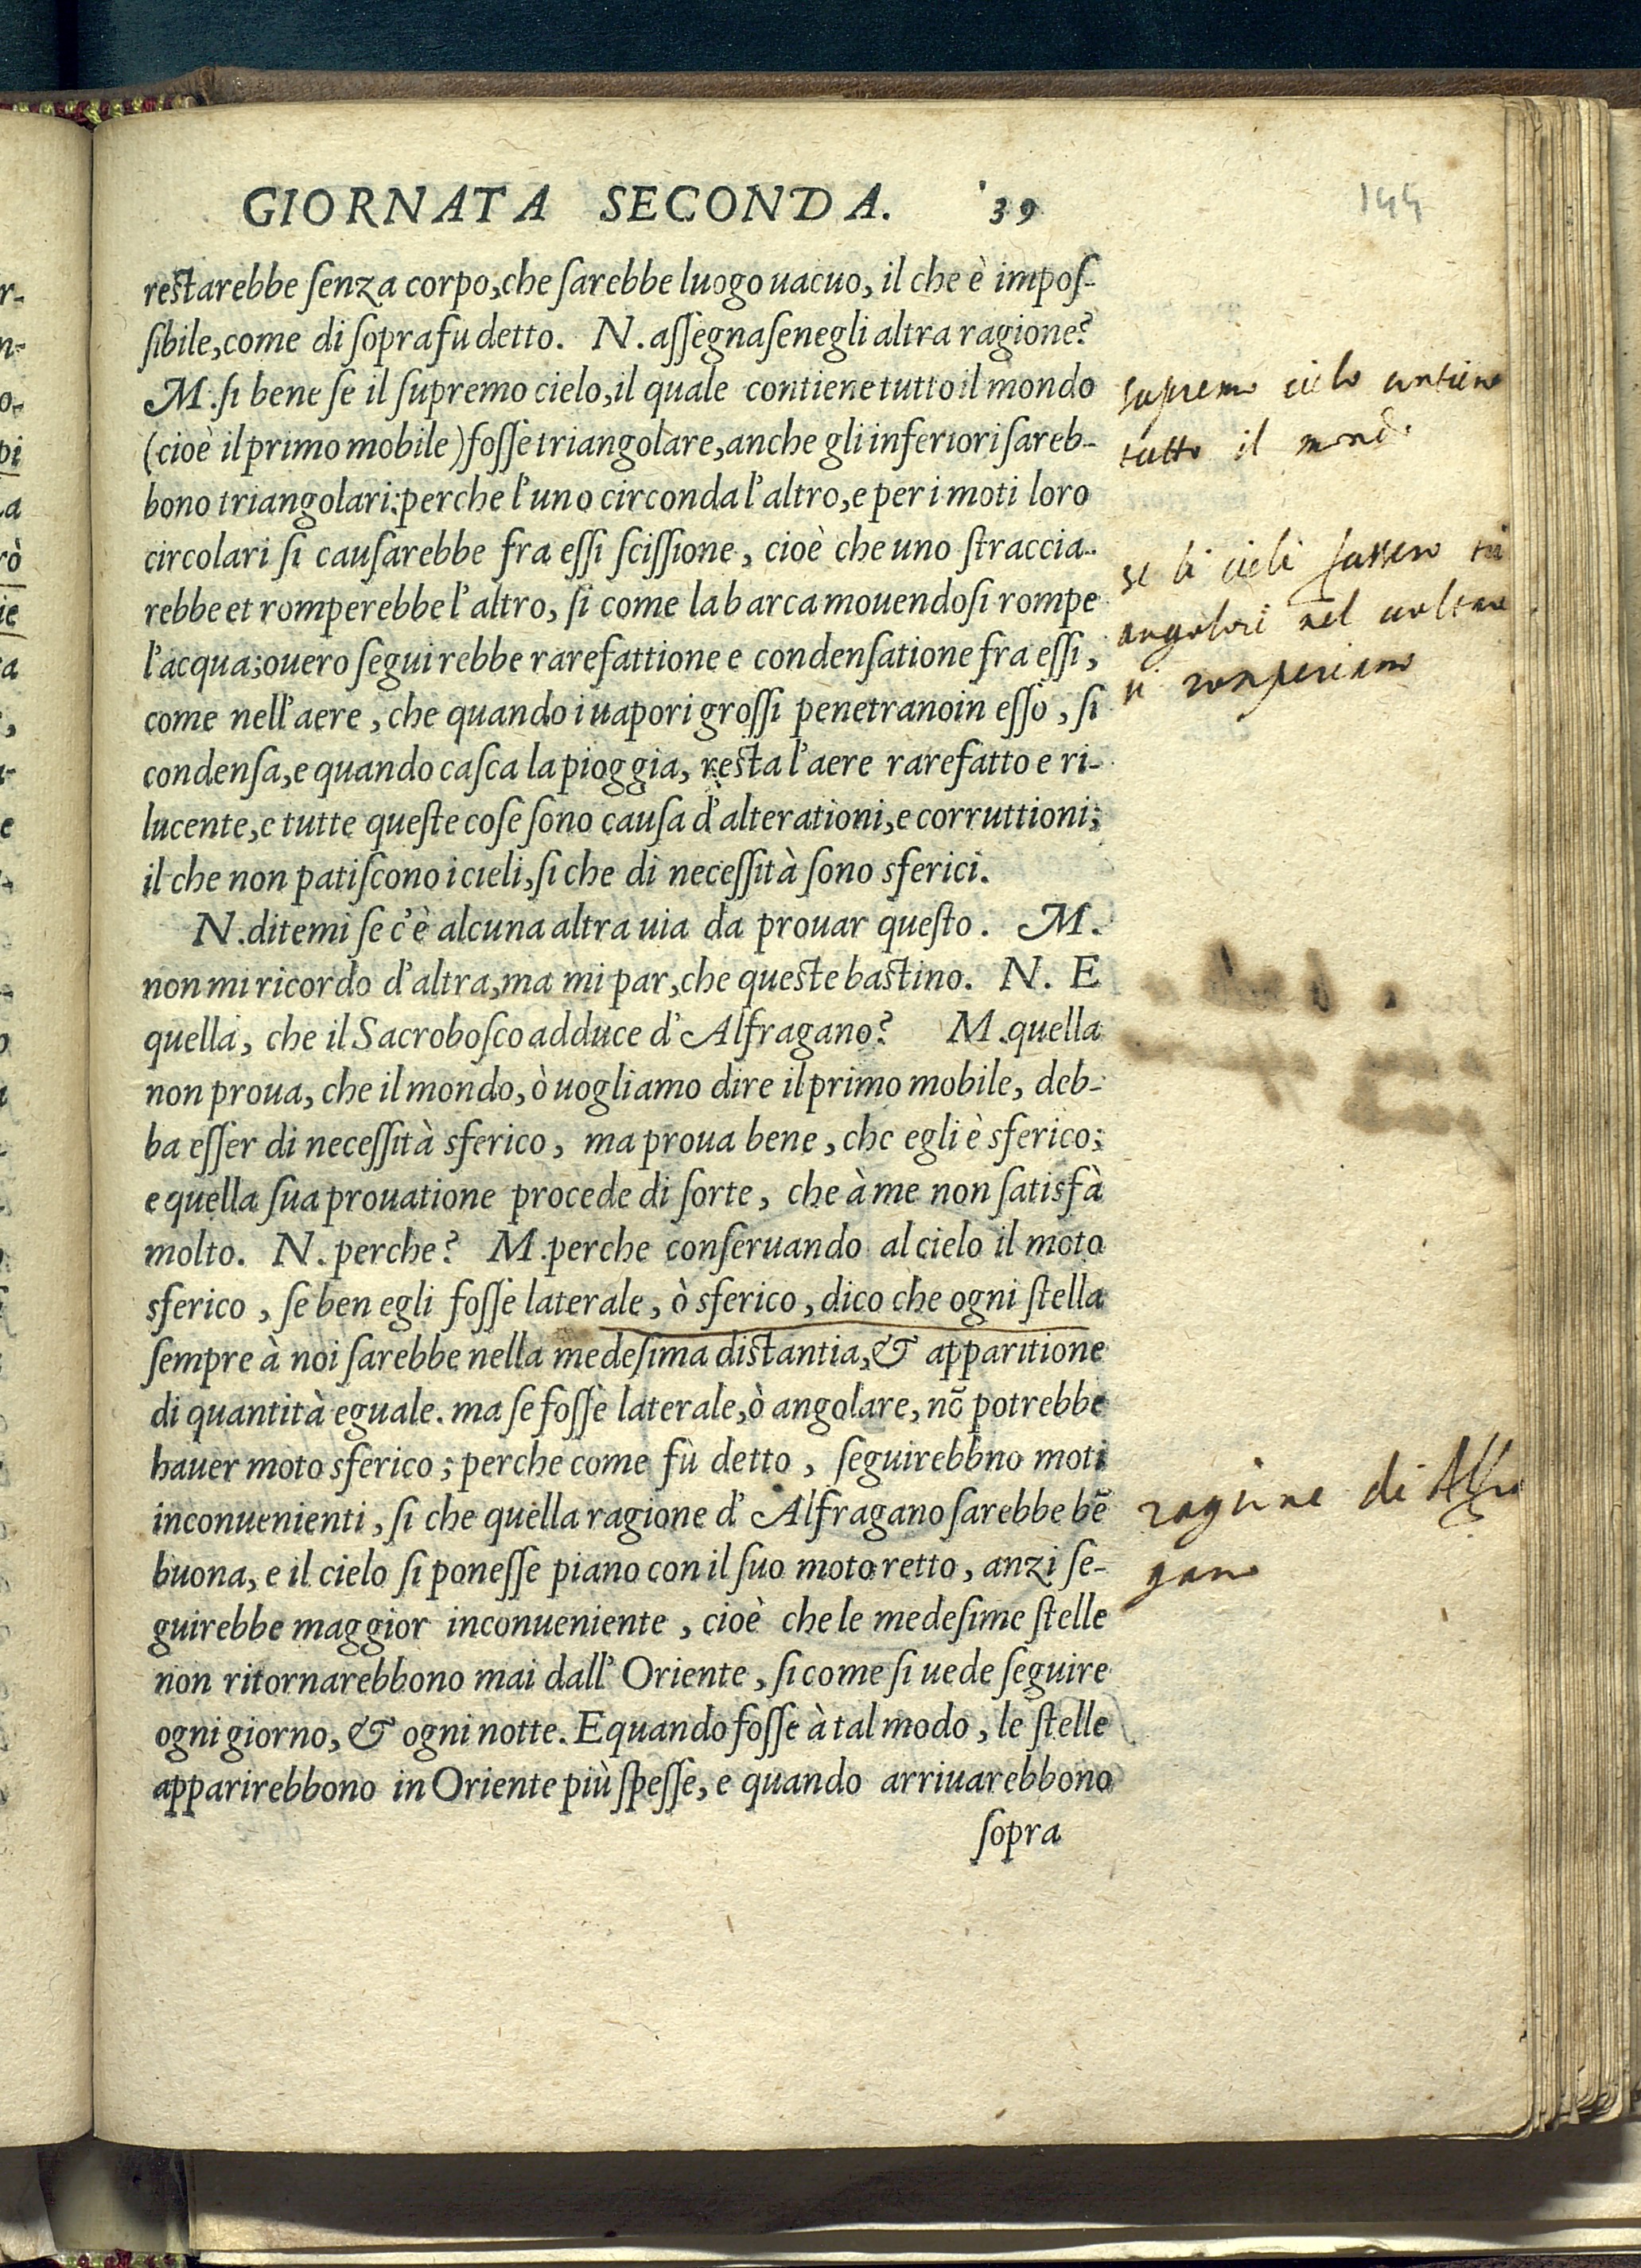 GIORNATA SECONDA. 39
144
restarebbe senza corpo, che sarebbe luogo uacuo, il che è impos-
sibile, come di sopra fu detto. N. assegnasenegli altra ragione?
M. si bene se il supremo cielo, il quale contiene tutto il mondo
(cioè il primo mobile) fosse triangolare, anche gli inferiori sareb-
bono triangolari: perche l'uno circonda l'altro, e per i moti loro
circolari si causarebbe fra essi scissione, cioè che uno straccia-
rebbe et romperebbe l'altro, si come la barca mouendosi rompe
l'acqua; ouero seguirebbe rarefattione e condensatione fra essi,
come nell'aere, che quando i uapori grossi penetrano in esso, si
condensa, e quando casca la pioggia, resta l'aere rarefatto e ri-
lucente, e tutte queste cose sono causa d'alterationi, e corruttioni;
il che non patiscono i cieli, si che di necessità sono sferici.
N. ditemi se c'è alcuna altra uia da prouar questo. M.
non mi ricordo d'altra, ma mi par, che queste bastino. N. E
quella, che il Sacrobosco adduce d'Alfragano? M. quella
non proua, che il mondo, ò uogliamo dire il primo mobile, deb-
ba esser di necessità sferico, ma proua bene, che egli è sferico;
e quella sua prouatione procede di sorte, che à me non satisfà
molto. N. perche? M. perche conseruando al cielo il moto
sferico, se ben egli fosse laterale, ò sferico, dico che ogni stella
sempre à noi sarebbe nella medesima distantia, & apparitione
di quantità eguale. ma se fosse laterale, ò angolare, nõ potrebbe
hauer moto sferico; perche come fù detto, seguirebbno moti
inconuenienti, si che quella ragione d'Alfragano sarebbe bẽ
buona, e il cielo si ponesse piano con il suo moto retto, anzi se-
guirebbe maggior inconueniente, cioè che le medesime stelle
non ritornarebbono mai dall'Oriente, si come si uede seguire
ogni giorno, & ogni notte. E quando fosse à tal modo, le stelle
apparirebbono in Oriente più spesse, e quando arriuarebbono
sopra
supremo cielo contiene
tutto il mondo
se li cieli fussero tri
angolari nel uoltare
si romperiano
ragione di Alfra
gano